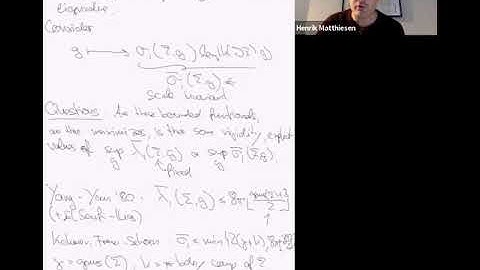 eigenvalue.
Consider
g ⟼ σ₁(Σ,g) length(∂Σ,g)
σ̄₁(Σ,g) ←
scale invariant
Questions: Are these bounded functionals,
are there maximizers, is there some rigidity, explicit
values of sup_g λ̄₁(Σ,g) or sup_g σ̄₁(Σ,g).
fixed
Yang-Yau '80: λ̄₁(Σ,g) ≤ 8π [
(+ El Soufi - Ilias)
Kokarev, Fraser Schoen: σ̄₁ ≤ min{2(γ+k),
γ = genus(Σ), k = # bdry comp of Σ
Henrik Matthiesen